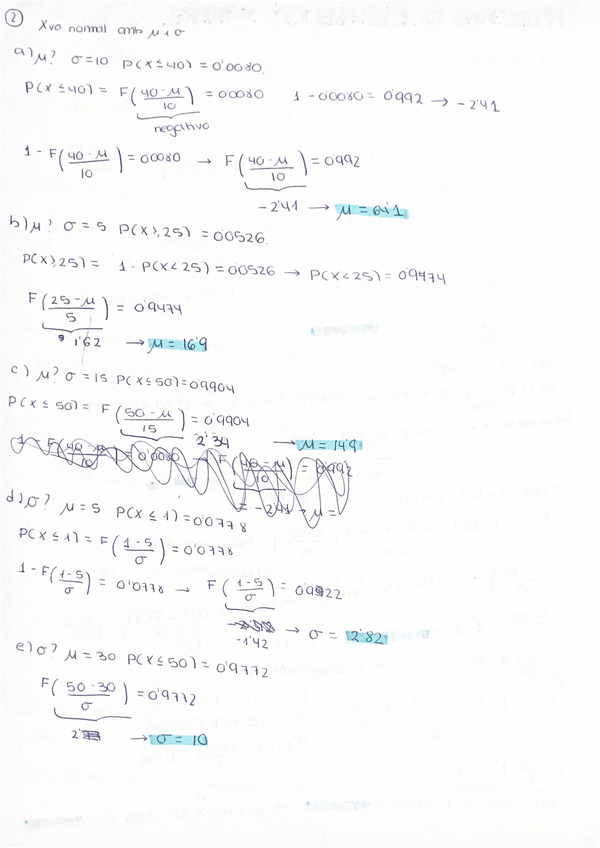 2
X va normal amb μ i σ
a) μ? σ=10 P(X≤40)=0'0080.
P(X≤40) = F(40-μ/10) = 0'0080 1-0'0080=0'992 → -2'41
negativo
1-F(40-μ/10)=0'0080 → F(40-μ/10)=0'992
-2'41 → μ=64'1
b) μ? σ=5 P(X≥25)=0'0526.
P(X≥25)= 1-P(X<25)=0'0526 → P(X<25)=0'9474
F(25-μ/5) = 0'9474
1'62 → μ=16'9
c) μ? σ=15 P(X≤50)=0'9904
P(X≤50)= F(50-μ/15)=0'9904
2'34 → μ=14'9
1-F(40-μ/10)=0'0080 → F(40-μ/10)=0'992
= -2'41 → μ=
d) σ? μ=5 P(X≤1)=0'0778
P(X≤1)=F(1-5/σ)=0'0778
1-F(1-5/σ)=0'0778 → F(1-5/σ)=0'9222
-1'42 → σ= 2'82
e) σ? μ=30 P(X≤50)=0'9772
F(50-30/σ)=0'9772
2' → σ=10